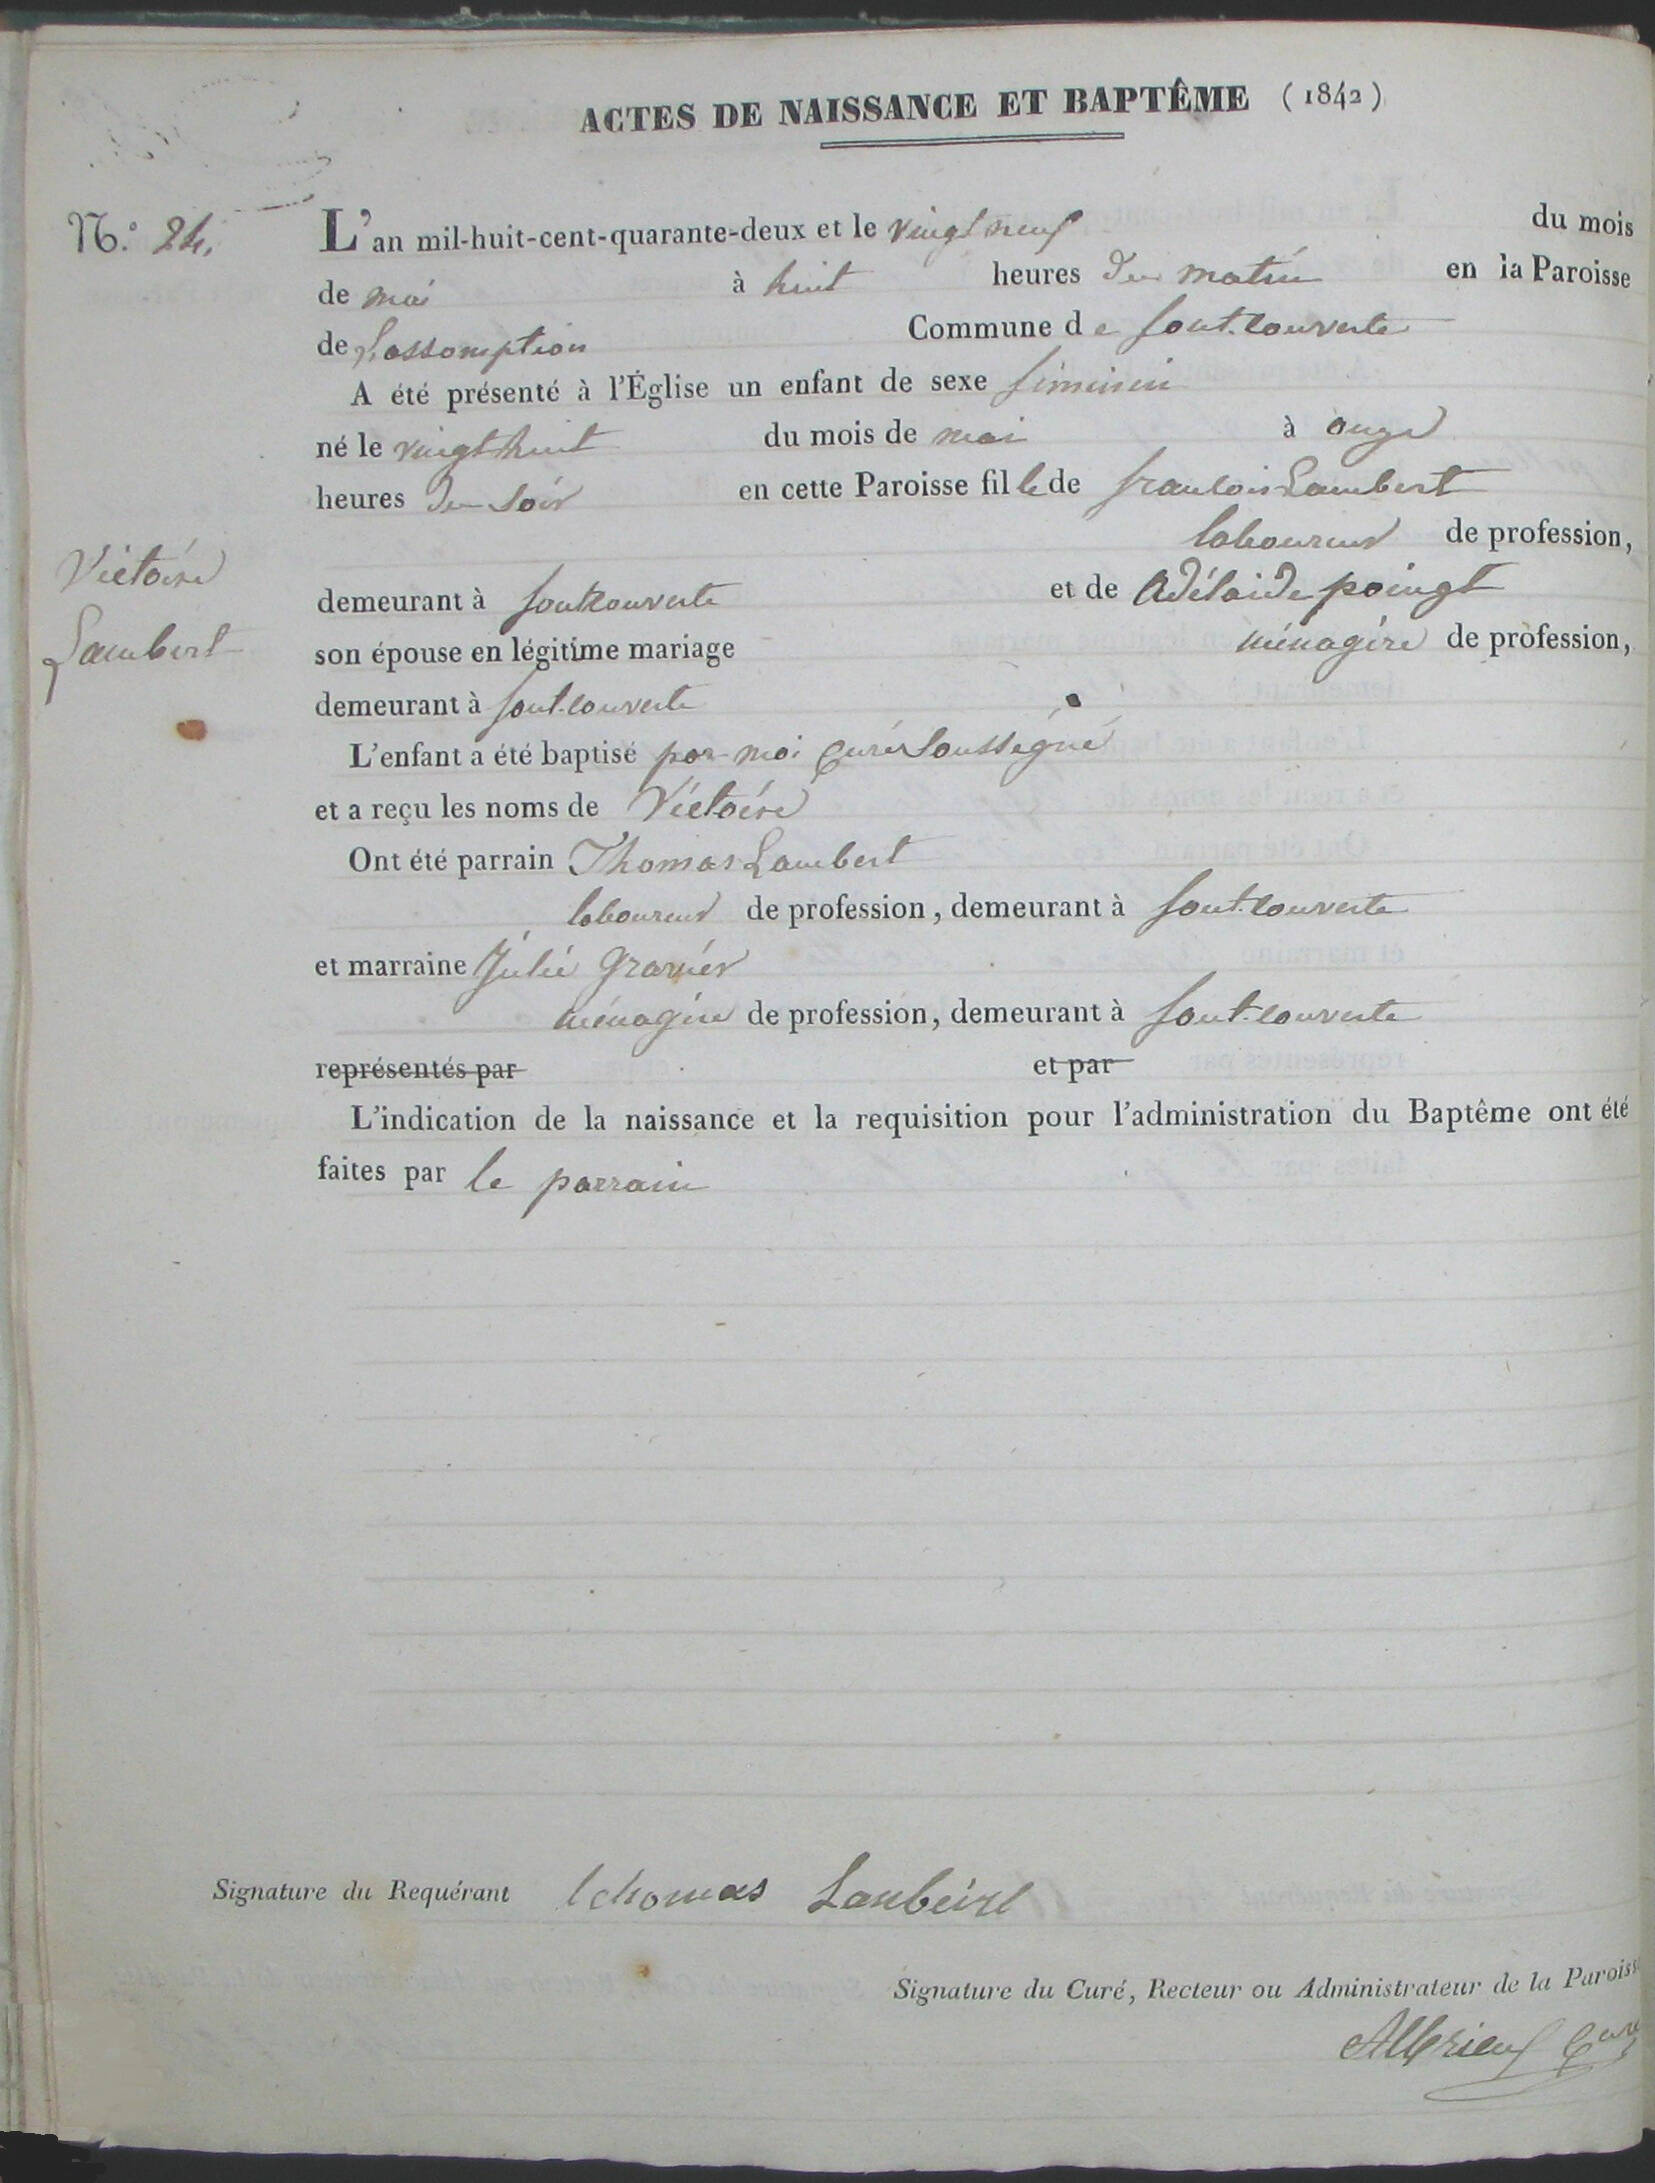 ACTES DE NAISSANCE ET BAPTÊME (1842)
N.° 24. L'an mil-huit-cent-quarante-deux et le vingt neuf du mois
de mai à huit heures du matin en la Paroisse
de L'assomption Commune de font-couverte
A été présenté à l'Église un enfant de sexe féminin
né le vingt huit du mois de mai à onze
heures du soir en cette Paroisse fille de francois Lambert
laboureur de profession,
Victoire
demeurant à fontcouverte et de Adélaide poingt
Lambert
son épouse en légitime mariage ménagère de profession,
demeurant à font-couverte
L'enfant a été baptisé par moi Curé Soussigné
et a reçu les noms de Victoire
Ont été parrain Thomas Lambert
laboureur de profession, demeurant à font-couverte
et marraine Julie gravier
ménagère de profession, demeurant à font-couverte
représentés par et par
L'indication de la naissance et la requisition pour l'administration du Baptême ont été
faites par le parrain
Signature du Requérant thomas Lanbeirt
Signature du Curé, Recteur ou Administrateur de la Paroisse
Albrieux Curé